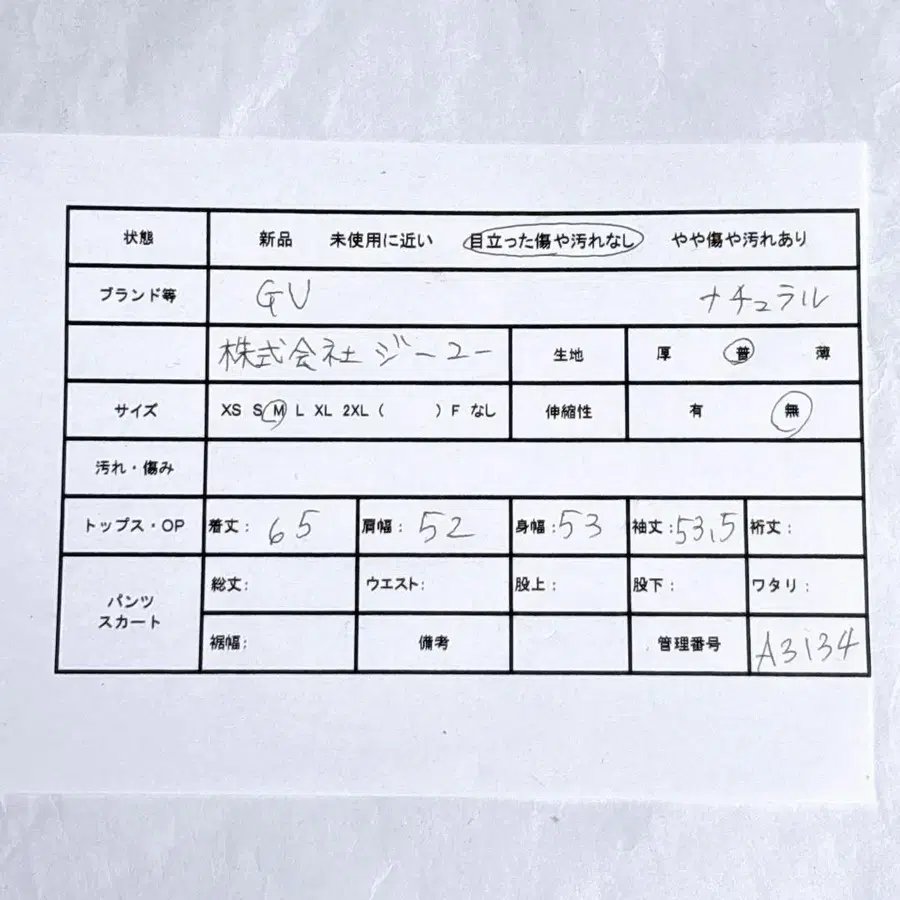 状態 新品 未使用に近い 目立った傷や汚れなし やや傷や汚れあり
ブランド等 GU ナチュラル
株式会社ジーユー 生地 厚 普 薄
サイズ XS S M L XL 2XL ( ) F なし 伸縮性 有 無
汚れ・傷み
トップス・OP 着丈: 65 肩幅: 52 身幅: 53 袖丈: 53.5 裄丈:
パンツ スカート 総丈: ウエスト: 股上: 股下: ワタリ:
裾幅: 備考 管理番号 A3134